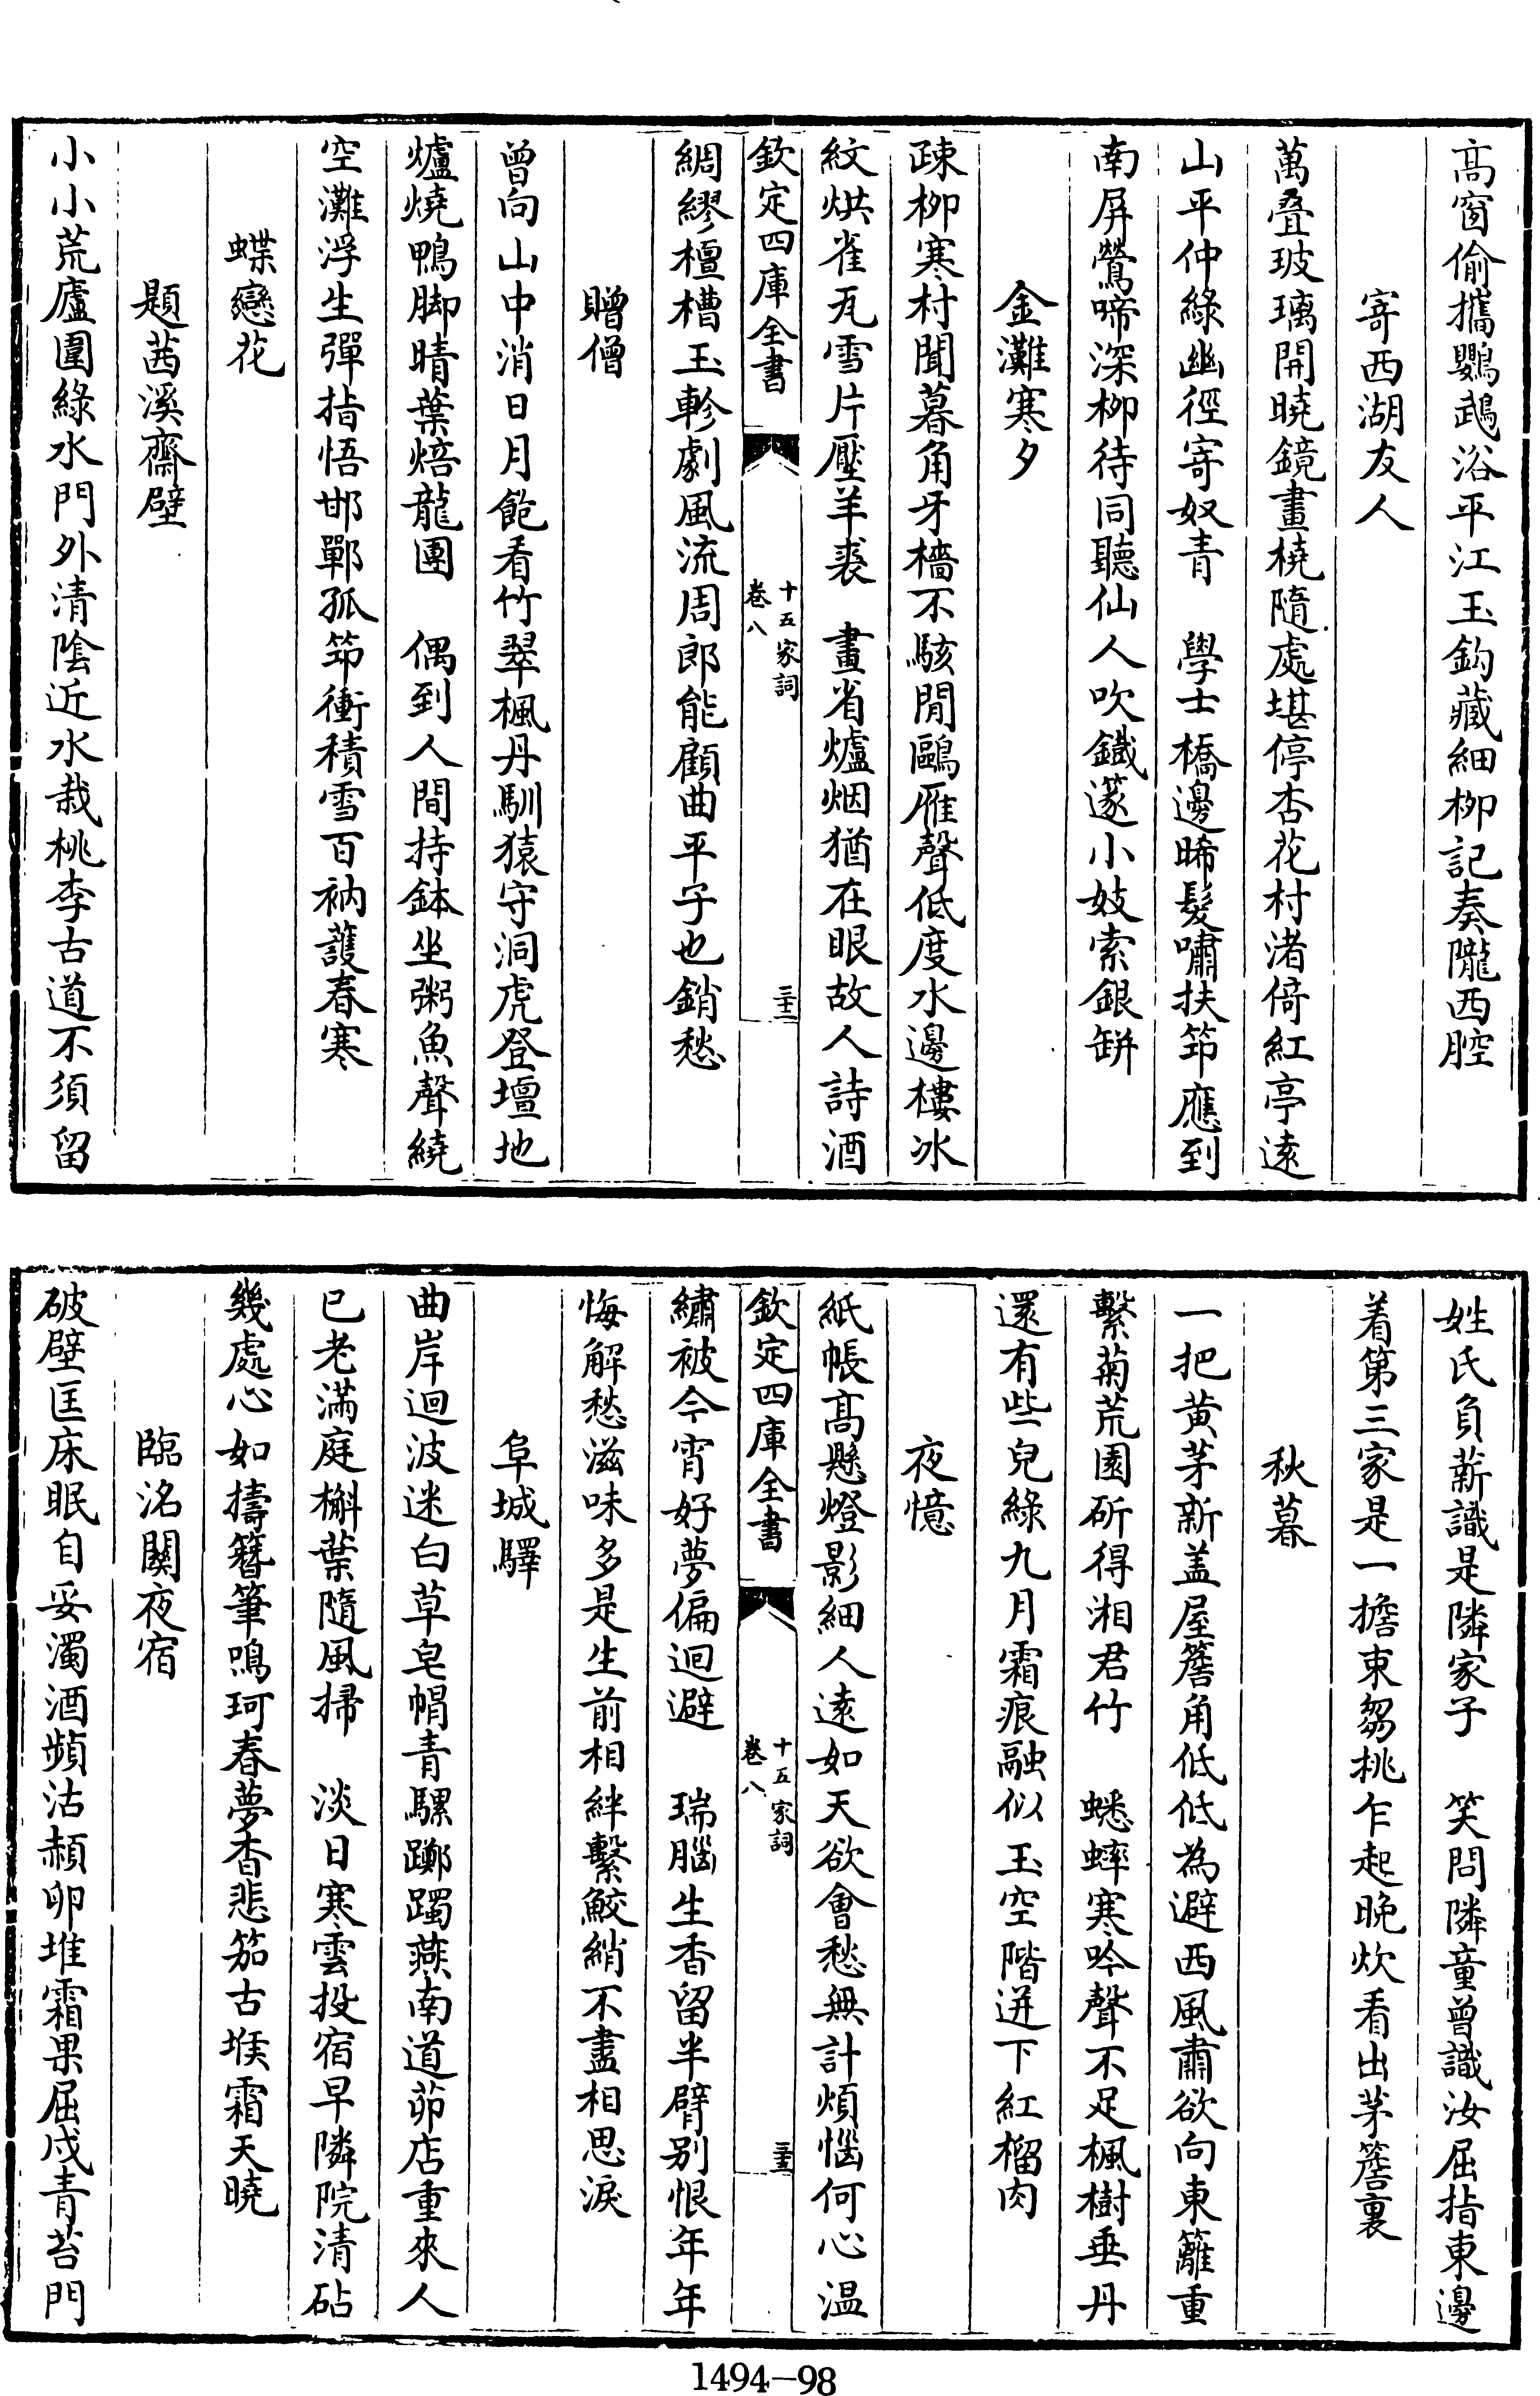 高窗偷攜鸚鵡浴平江玉鈎藏細柳記奏隴西腔
寄西湖友人
萬叠玻璃開曉鏡畫橈隨處堪停杏花村渚倚紅亭遠
山平仲綠幽徑寄奴青　學士橋邊晞髮嘯扶笻應到
南屏鶯啼深柳待同聽仙人吹鐵篴小妓索銀缾
金灘寒夕
疎柳寒村聞暮角牙檣不駭閒鷗雁聲低度水邊樓冰
紋烘雀瓦雪片壓羊裘　畫省爐烟猶在眼故人詩酒
欽定四庫全書
十五家詞
卷八
三十二
綢繆檀槽玉軫劇風流周郎能顧曲平子也銷愁
贈僧
曾向山中消日月飽看竹翠楓丹馴猿守洞虎登壇地
爐燒鴨脚晴葉焙龍團　偶到人間持鉢坐粥魚聲繞
空灘浮生彈指悟邯鄲孤笻衝積雪百衲護春寒
蝶戀花
題茜溪齋壁
小小荒廬圍綠水門外清陰近水栽桃李古道不須留
姓氏負薪識是隣家子　笑問隣童曾識汝屈指東邊
着第三家是一擔東芻挑乍起晚炊看出茅簷裏
秋暮
一把黄茅新盖屋簷角低低為避西風肅欲向東籬重
繫菊荒園斫得湘君竹　蟋蟀寒吟聲不足楓樹垂丹
還有些兒綠九月霜痕融似玉空階迸下紅榴肉
夜憶
紙帳高懸燈影細人遠如天欲會愁無計煩惱何心温
欽定四庫全書
十五家詞
卷八
三十三
繡被今宵好夢偏迴避　瑞腦生香留半臂别恨年年
悔解愁滋味多是生前相絆繫鮫綃不盡相思淚
阜城驛
曲岸迴波迷白草皂帽青騾躑躅燕南道茆店重來人
已老滿庭槲葉隨風掃　淡日寒雲投宿早隣院清砧
幾處心如擣簪筆鳴珂春夢杳悲笳古堠霜天曉
臨洺關夜宿
破壁匡床眠自妥濁酒頻沽頳卵堆霜果屈戌青苔門
1494-98